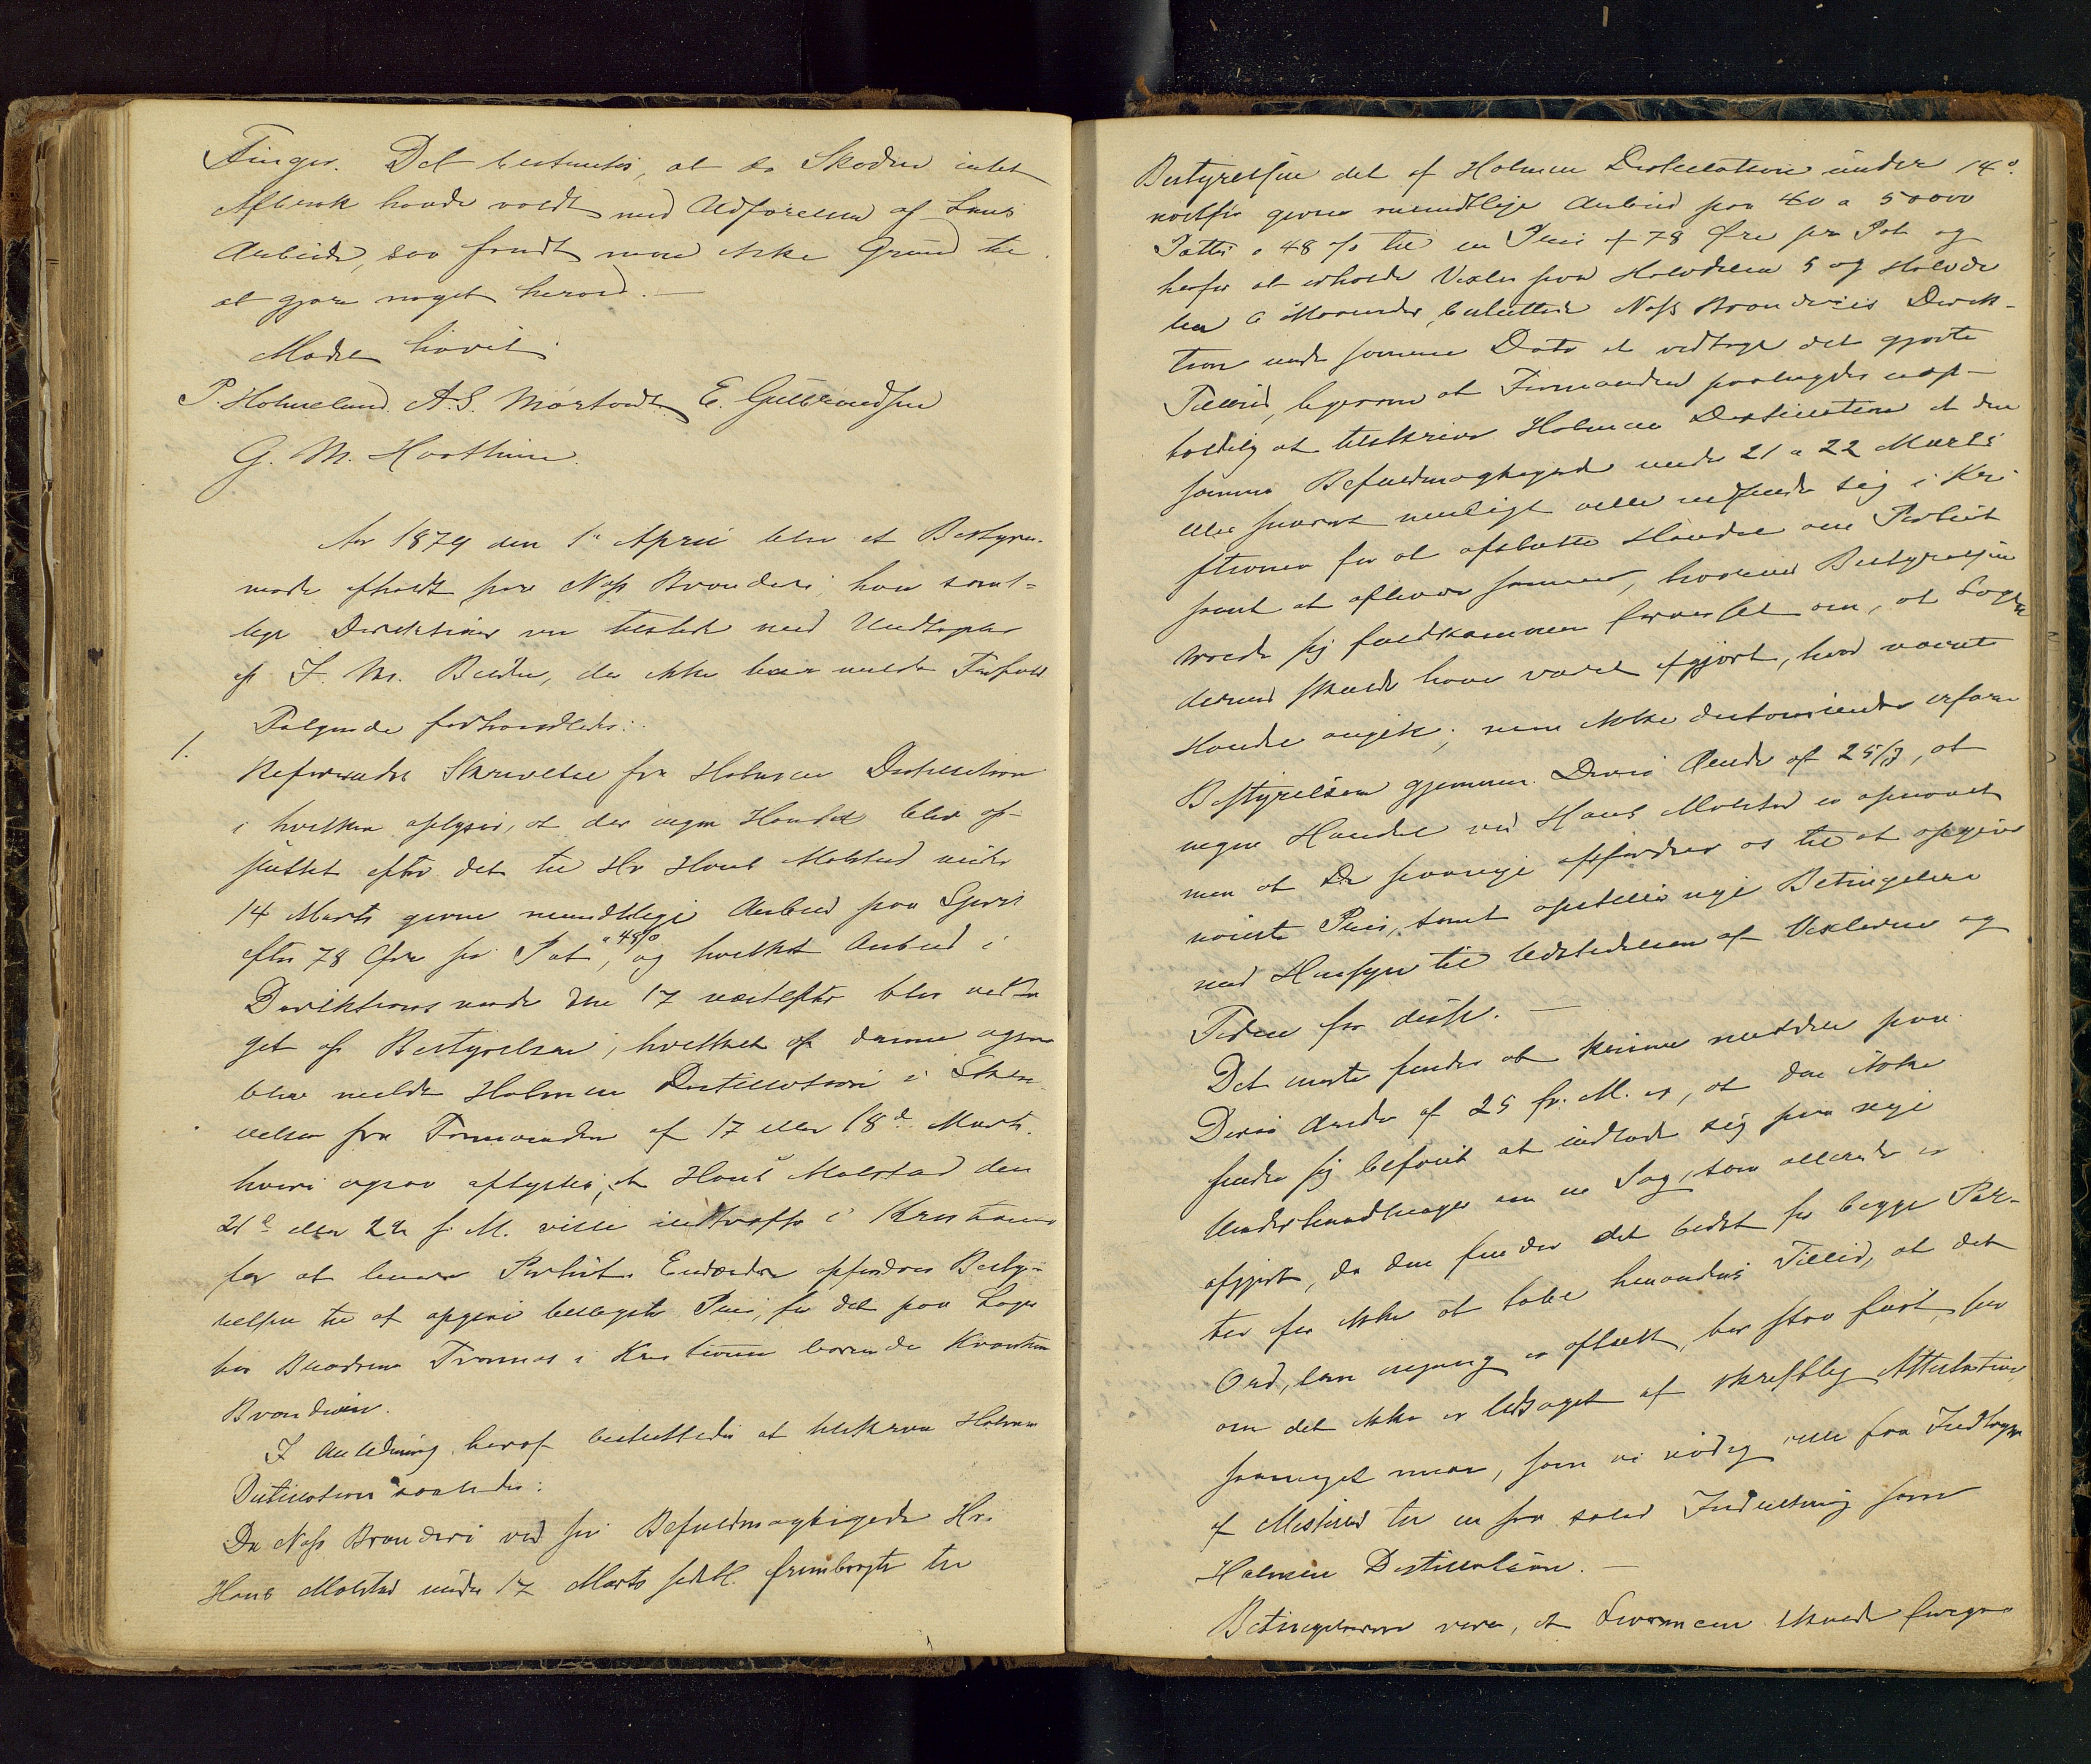 Finger. Det bestemtes, at da Skaden intet
Afbræk havde voldt med Udførelsen af hans
Arbeide, saa fandt man ikke Grund til
at gjøre noget herved. —
Mødet hævet
P. Holmelund. A. G. Mørstad E. Gulbrandsen
G. M. Haslhuue.
Aar 1879 den 1te April blev et Bestyrer-
møde afholdt paa Næs Brænderi, hvor samt-
lige Direktører var tilstede med Undtagelse
af J. M. Bilden, der ikke havde meldt Forfald
Følgende forhandledes:
1.
Refereredes Skrivelse fra Holmen Destillation
i hvilken oplyses, at der ingen Handel blev af-
sluttet efter det til Hr Hans Molstad under
14 Marts givne mundtlige Anbud paa Sprit
efter 78 Øre pr Pot, a 48 % og hvilket Anbud i
Direktionsmøde den 17 næstefter blev vedta-
get af Bestyrelsen, hvilket af denne ogsaa
blev meldt Holmen Destillation i Skri-
velse fra Formanden af 17 eller 18de Marts.
hvori ogsaa oplystes, at Hans Molstad den
21de eller 22 s. M. ville indtræffe i Kristiania
for at levere Partiet. Endvidere opfordres Besty-
relsen til at opgive billigste Pris, for det paa Lager
hos Brødrene Tømmes i Kristiania værende Kvantum
Brændevin.
I Anledning heraf besluttedes at tilskrive Holmen
Destillation saaledes:
Da Næs Brænderi ved sin Befuldmægtigede Hr.
Hans Molstad under 17 Marts sidstl. frembragte til
Bestyrelsen det af Holmen Destillation under 14de
næstfør givne mundtlige Anbud paa 40 a 50000
Potter a 48 % til en Pris af 78 Øre pr Pot og
herfor at erholde Vexler paa Halvdelen 5 og Halvde
len 6 Maaneder, besluttede Næs Brænderies Direk-
tion under samme Dato at vedtage det gjorte
Tilbud, ligesom at Formanden paalagdes uop-
holdelig at tilskrive Holmen Destillation at den
samme Befuldmægtigede under 21 a 22 Marts
eller snarest muligt ville indfinde sig i Kri
stiania for at afslutte Handel om Partiet
samt at aflevere samme, hvorved Bestyrelsen
troede sig fuldkommen forvisset om, at Sagen
dermed skulde have været afgjort, hvad næste
Handel angik; men ikke destomindre erfarer
Bestyrelsen gjennem Deres Ærede af 25/3, at
ingen Handel ved Hans Molstad er opnaaet
men at De paanye opfordrer os til at opgive
nøieste Pris, samt opstiller nye Betingelser
med Hensyn til Udstedelsen af Vexlerne og
Tiden for disse. —
Det eneste finder at kunne meddele paa
Deres Ærede af 25 f. M. er, at den ikke
finder sig beføiet at indlade sig paa nye
Underhandlinger om en Sag, som allerede er
afgjort, da den finder det bedst for begge Par-
ter for ikke at tabe hinandens Tillid, at det
Ord, som engang er aflagt, bør staa fast, selv
om det ikke er ledsaget af skriftlig Attestation
saameget mere, som vi nødig ville faa Indtryk
af Mistillid til en saa solid Indretning som
Holmen Destillation. —
Betingelserne vare, at Leverancen skulde foregaa